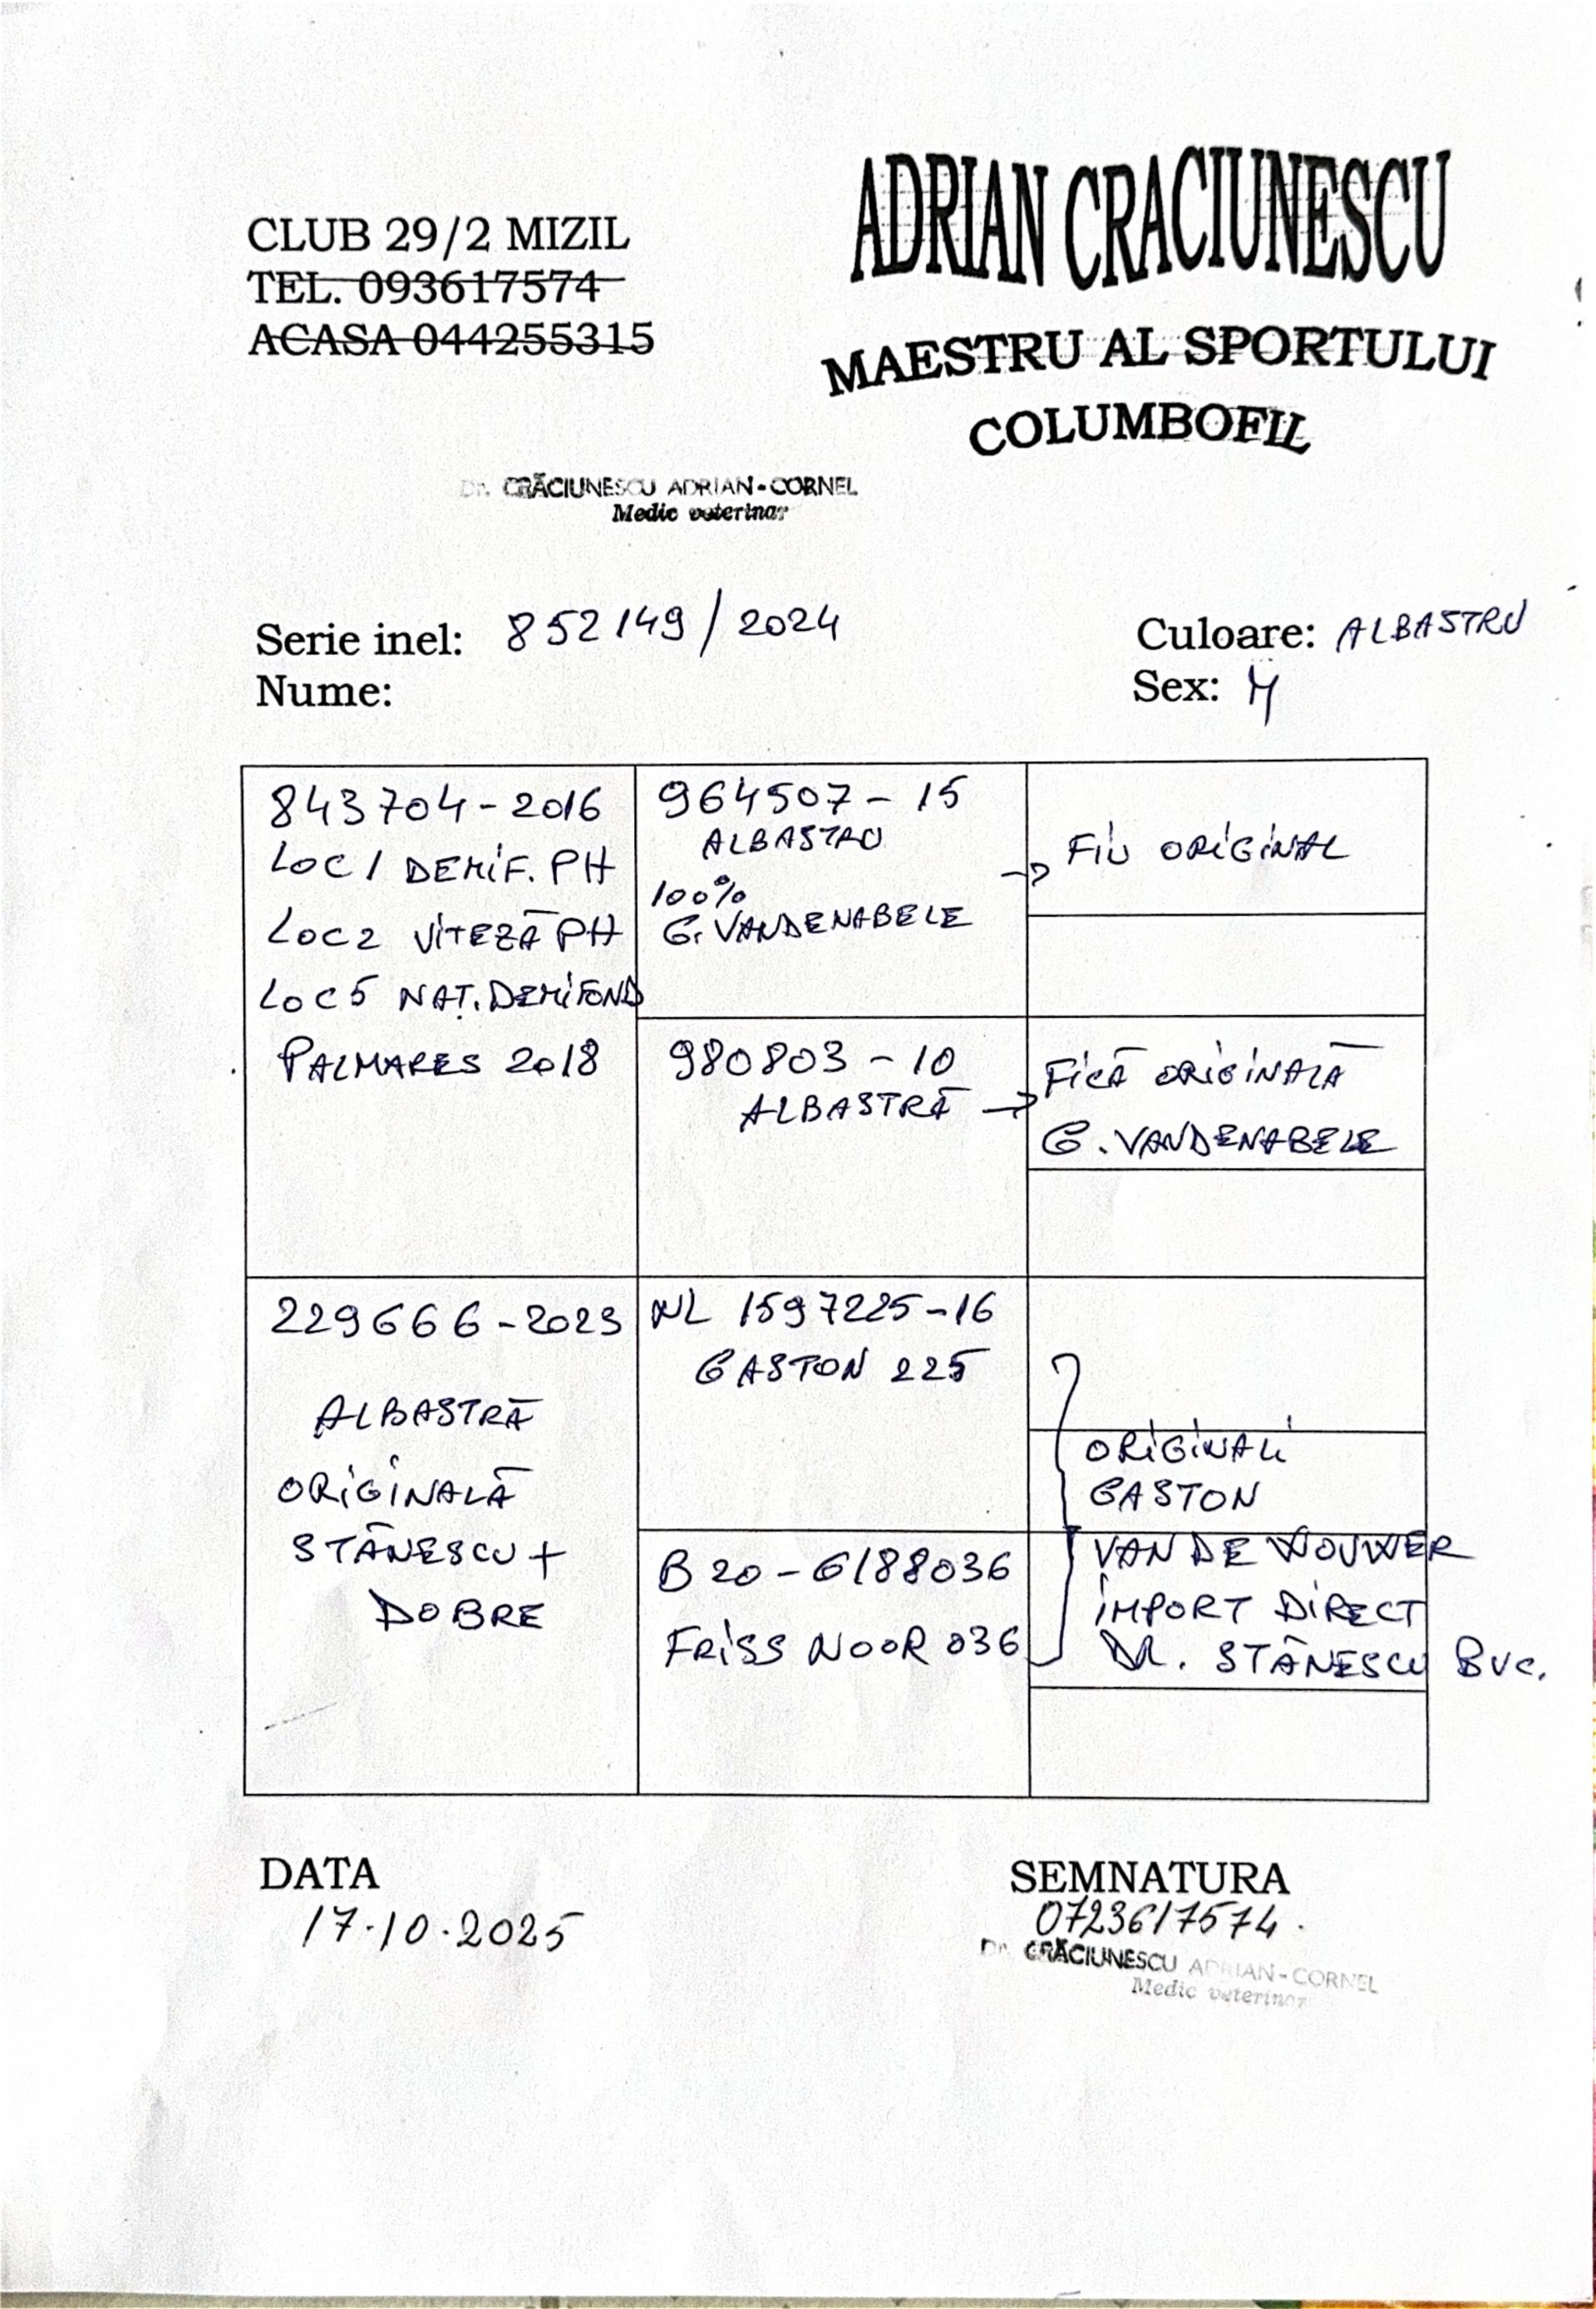 CLUB 29/2 MIZIL
TEL. 093617574
ACASA 044255315
ADRIAN CRACIUNESCU
MAESTRU AL SPORTULUI
COLUMBOFIL
Dr. CRĂCIUNESCU ADRIAN-CORNEL
Medic veterinar
Serie inel: 852149/2024
Culoare: ALBASTRU
Nume:
Sex: M
843704-2016
LOC 1 DEMIF. PH
LOC 2 VITEZĂ PH
LOC 5 NAȚ. DEMIFOND
PALMARES 2018
964507-15
ALBASTRU
100%
G. VANDENABELE
→ FIU ORIGINAL
980803-10
ALBASTRĂ →
FIICĂ ORIGINALĂ
G. VANDENABELE
229666-2023
ALBASTRĂ
ORIGINALĂ
STĂNESCU +
DOBRE
NL 1597225-16
GASTON 225
B 20-6188036
FRISS NOOR 036
ORIGINALI
GASTON
VAN DE WOUWER
IMPORT DIRECT
DR. STĂNESCU BUC.
DATA
17.10.2025
SEMNATURA
0723617574.
Dr. CRĂCIUNESCU ADRIAN-CORNEL
Medic veterinar